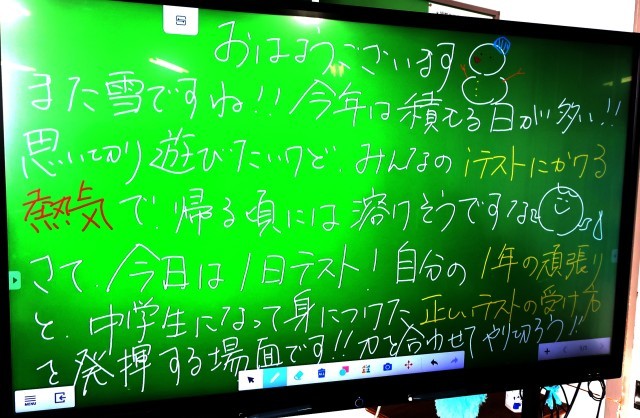 おはようございます
また雪ですね!! 今年は積もる日が多い!!
思い切り遊びたいけど、みんなのテストにかける
熱気で、帰る頃には溶けそうですな
さて、今日は1日テスト! 自分の1年の頑張り
と、中学生になって身につけた正しいテストの受け方
を発揮する場面です!! 力を合わせてやり切ろう!!
MENU